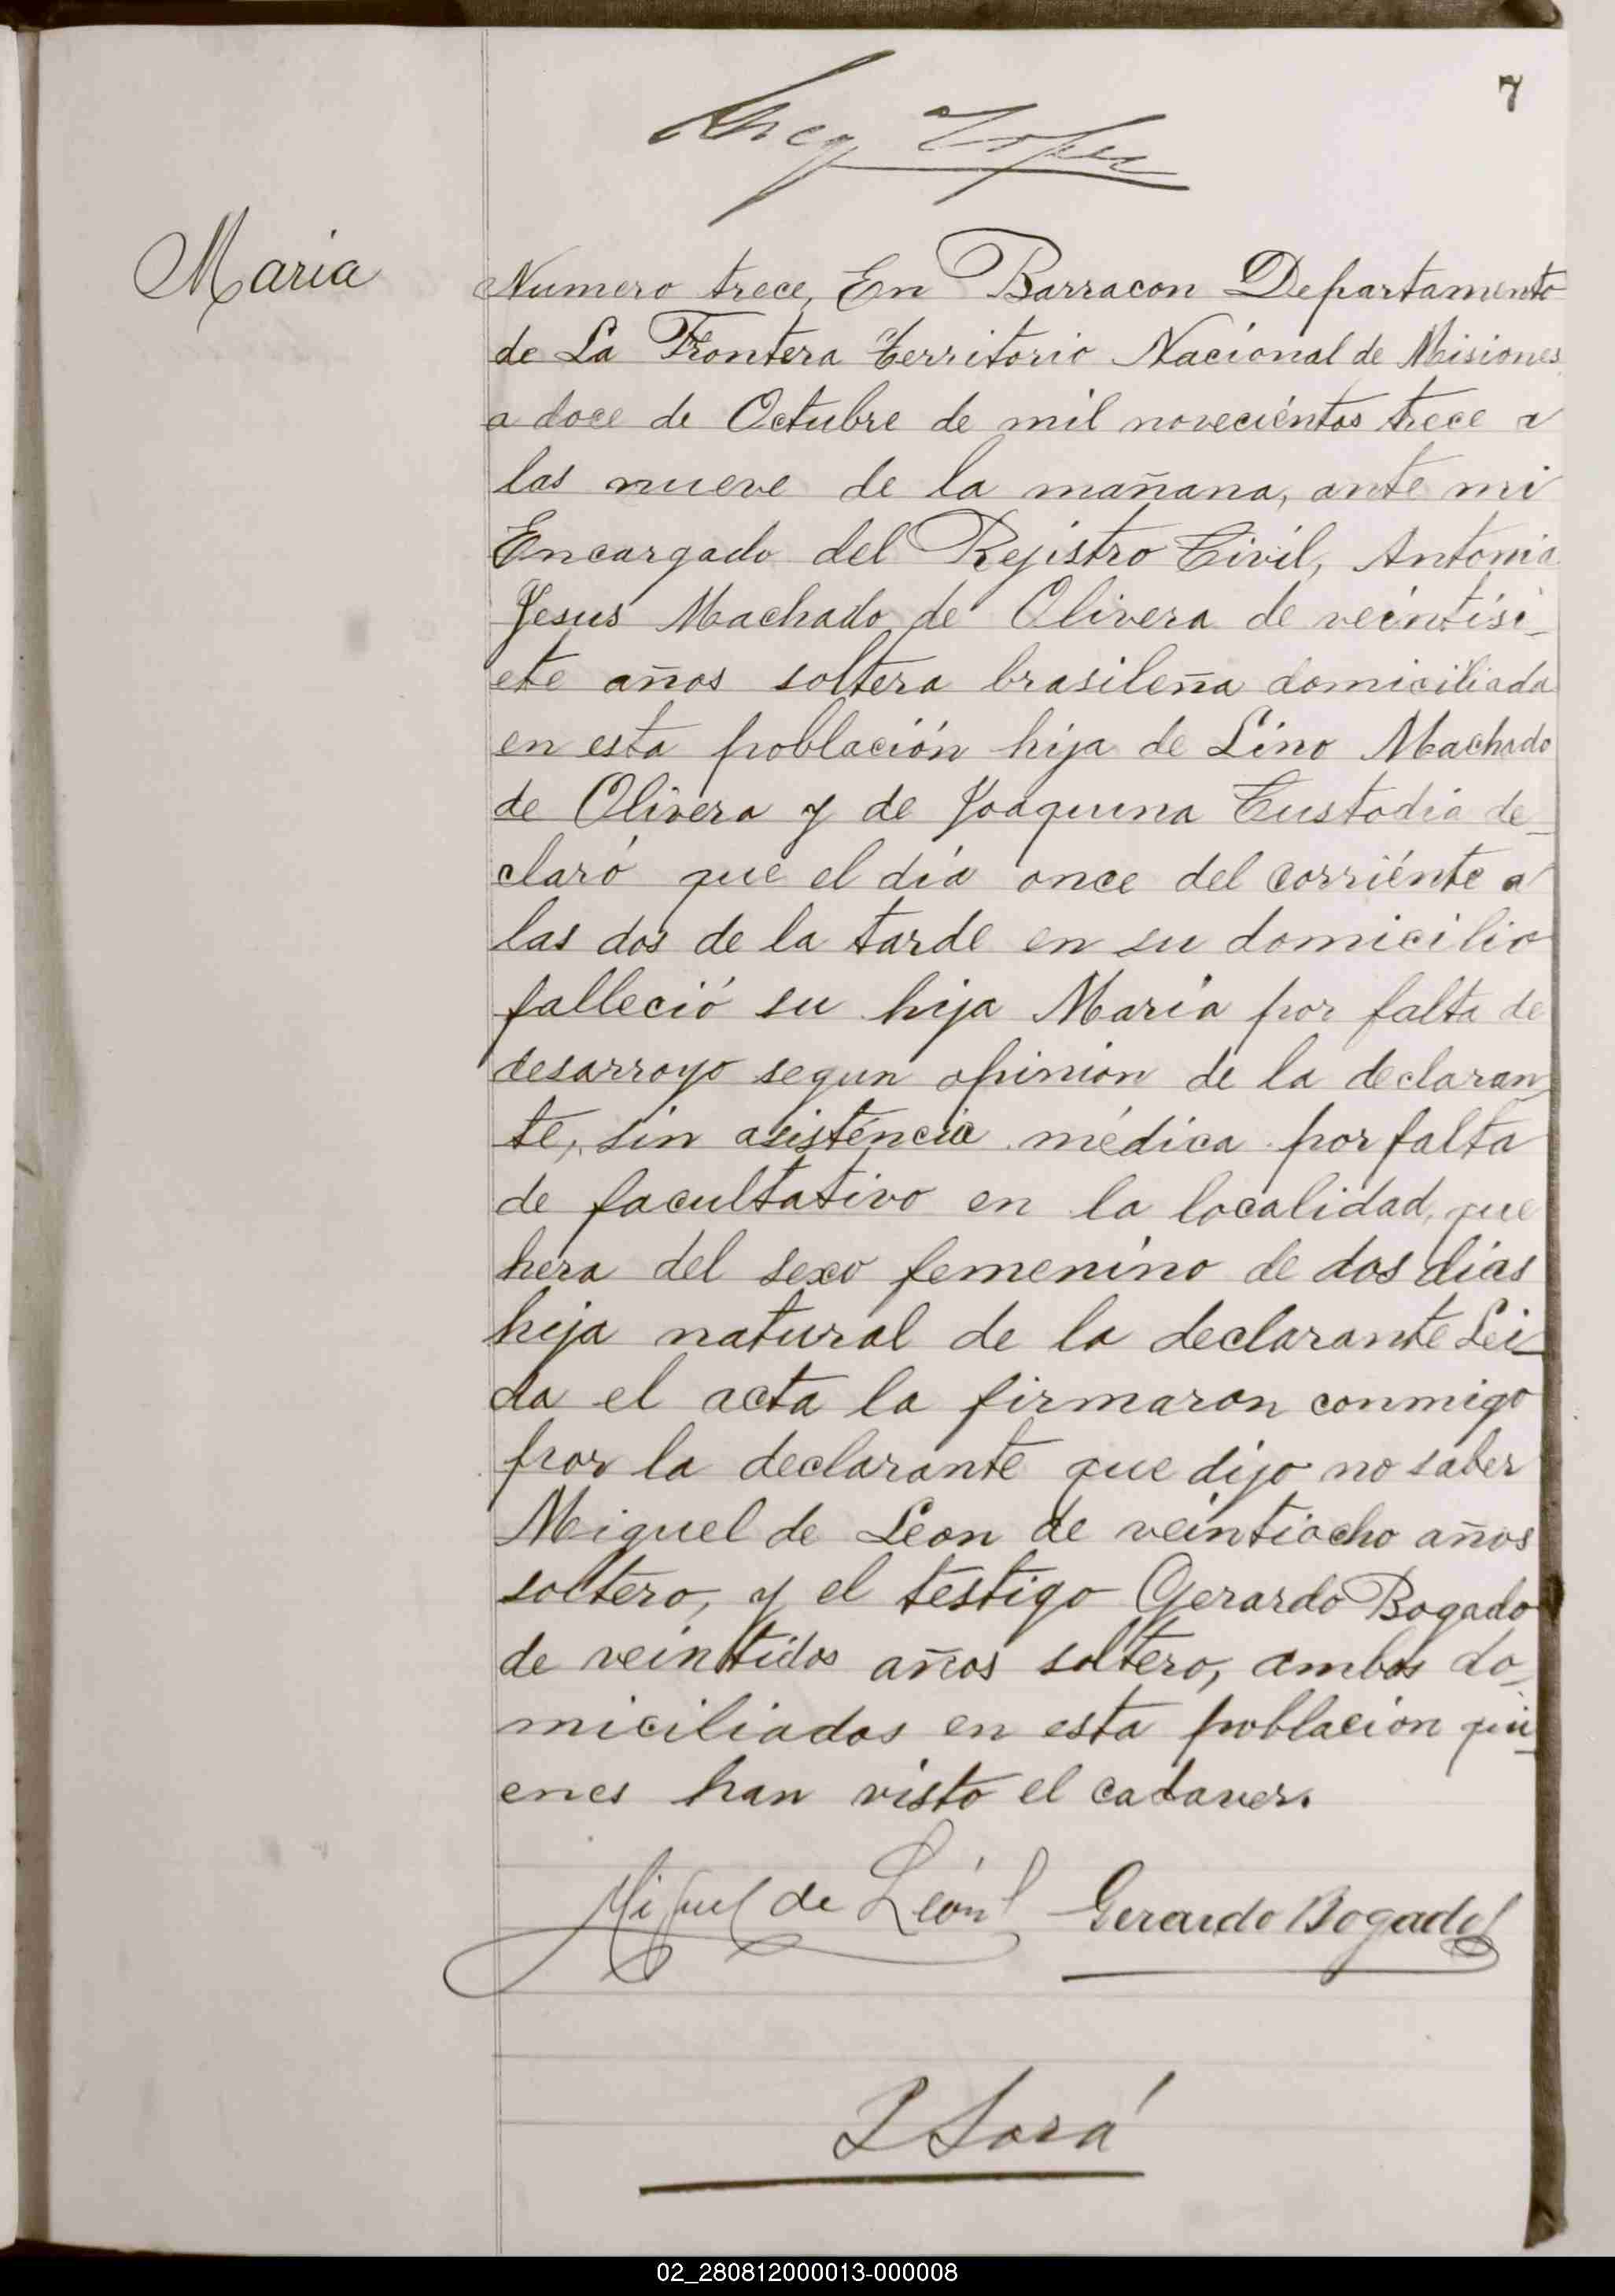 7
Maria
Numero trece, En Barracon Departamento
de La Frontera territorio Nacional de Misiones
a doce de Octubre de mil noveciéntos trece a
las nueve de la mañana, ante mi
Encargado del Rejistro Civil, Antonia
Jesus Machado de Olivera de veintisi-
ete años soltera brasileña domiciliada
en esta población hija de Lino Machado
de Olivera y de Joaquina Custodia de-
claró que el día once del corriénte a
las dos de la tarde en su domicilio
falleció su hija María por falta de
desarroyo segun opinion de la declaran
te, sin asisténcia médica por falta
de facultativo en la localidad, que
hera del sexo femenino de dos dias
hija natural de la declarante Lei-
da el acta la firmaron conmigo
por la declarante que dijo no saber
Miguel de Leon de veintiocho años
soltero, y el testigo Gerardo Bogado
de veintidos años soltero, ambos do-
miciliados en esta poblacion qui-
enes han visto el cadaver.
Miguel de León Gerardo Bogado
02_280812000013-000008